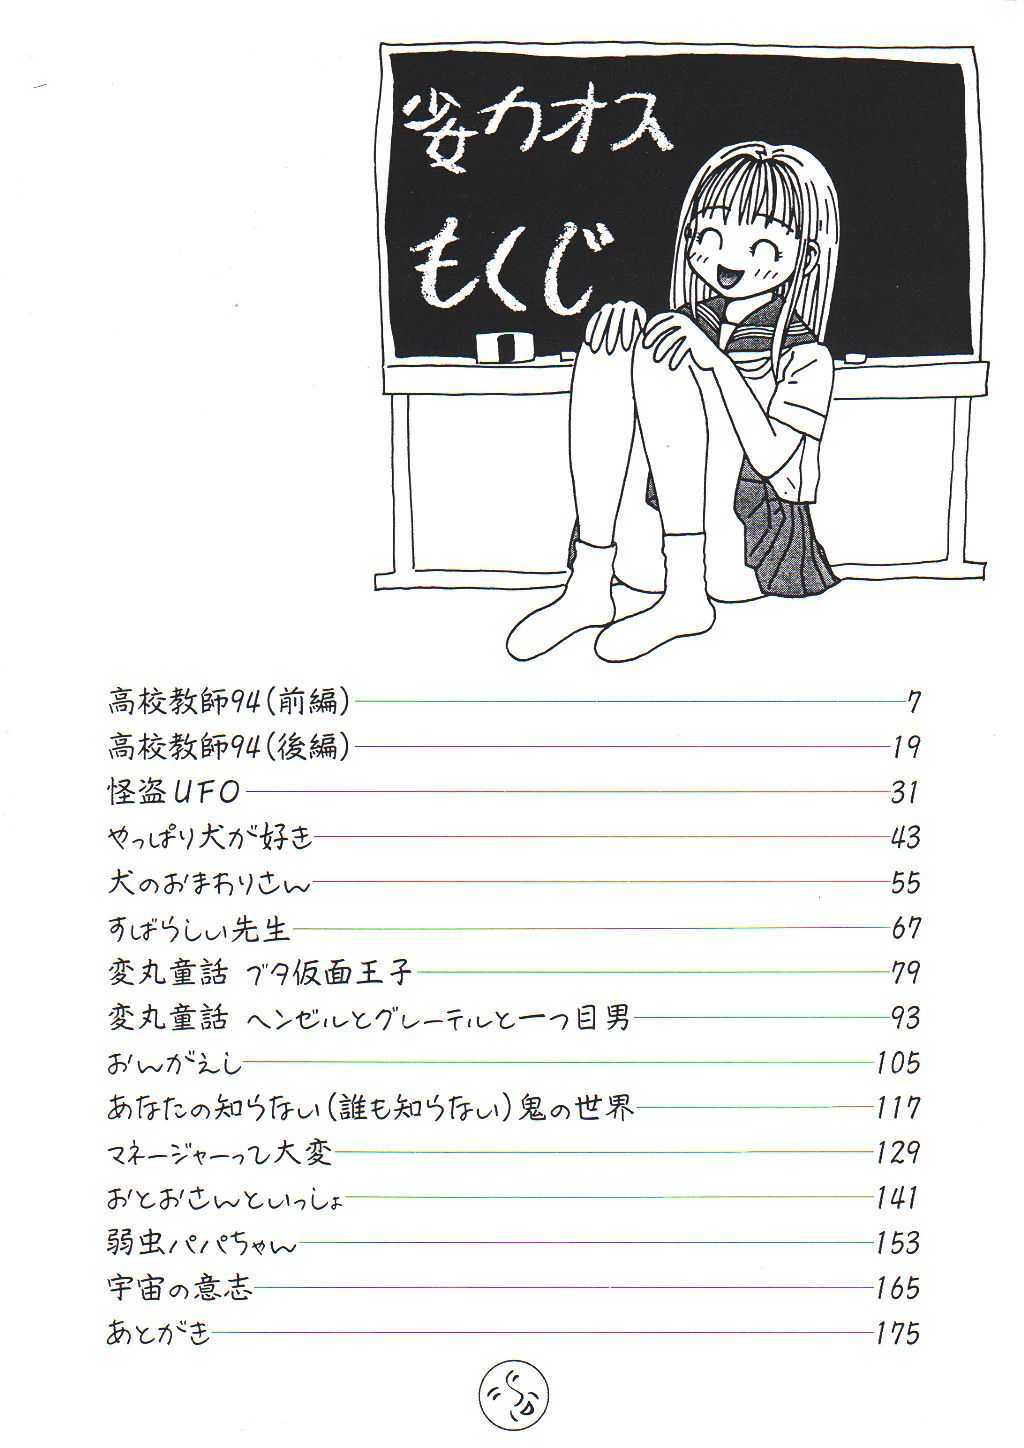 少女カオス
もくじ
高校教師94(前編) 7
高校教師94(後編) 19
怪盗UFO 31
やっぱり犬が好き 43
犬のおまわりさん 55
すばらしい先生 67
変丸童話 ブタ仮面王子 79
変丸童話 ヘンゼルとグレーテルと一つ目男 93
おんがえし 105
あなたの知らない(誰も知らない)鬼の世界 117
マネージャーって大変 129
おとおさんといっしょ 141
弱虫パパちゃん 153
宇宙の意志 165
あとがき 175